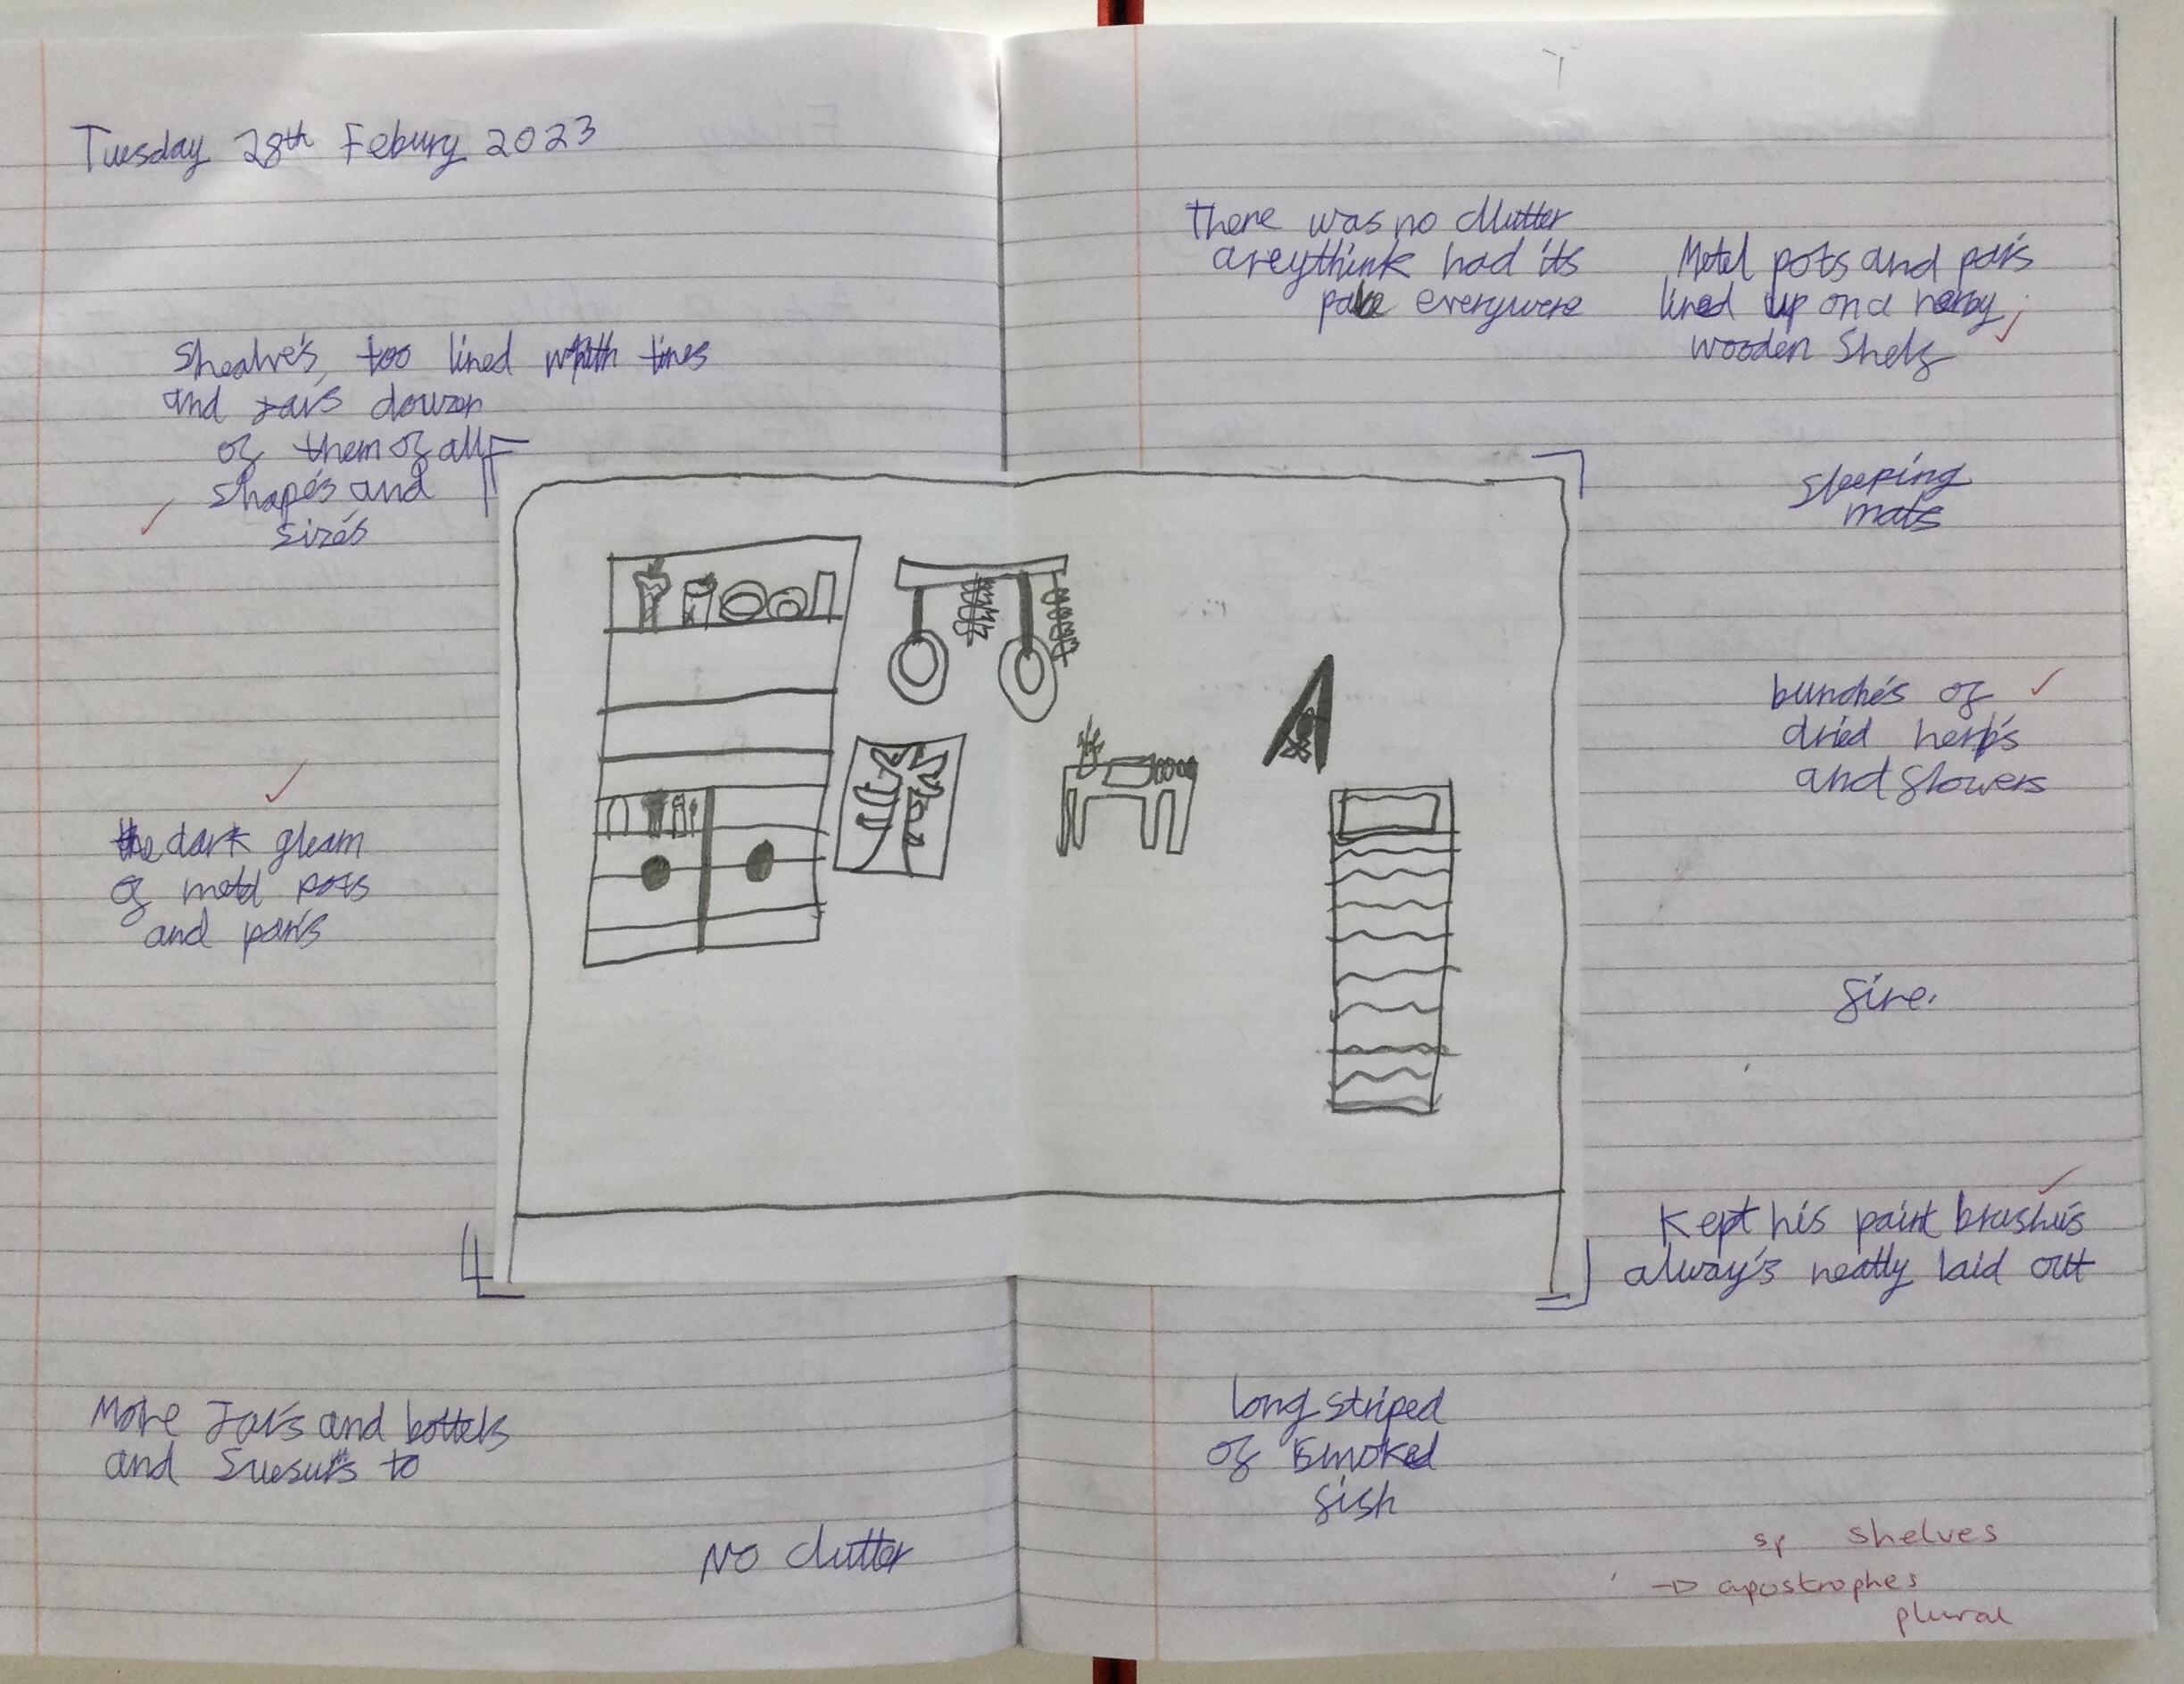 Tuesday 28th Febury 2023
Shealve's, too lined with tines
and Jar's douzon
of them of all
shape's and
size's
the dark gleam
of metal pots
and pan's
More Jar's and bottels
and to
No clutter
There was no clutter
areythink had its
everywere
Metel pots and pan's
lined up on a nerby
wooden Shelf
sleeping
mats
bunche's of
dried herb's
and flowers
fire.
Kept his paint brushe's
alway's neatly laid out
long striped
of smoked
fish
sp shelves
→ apostrophes
plural